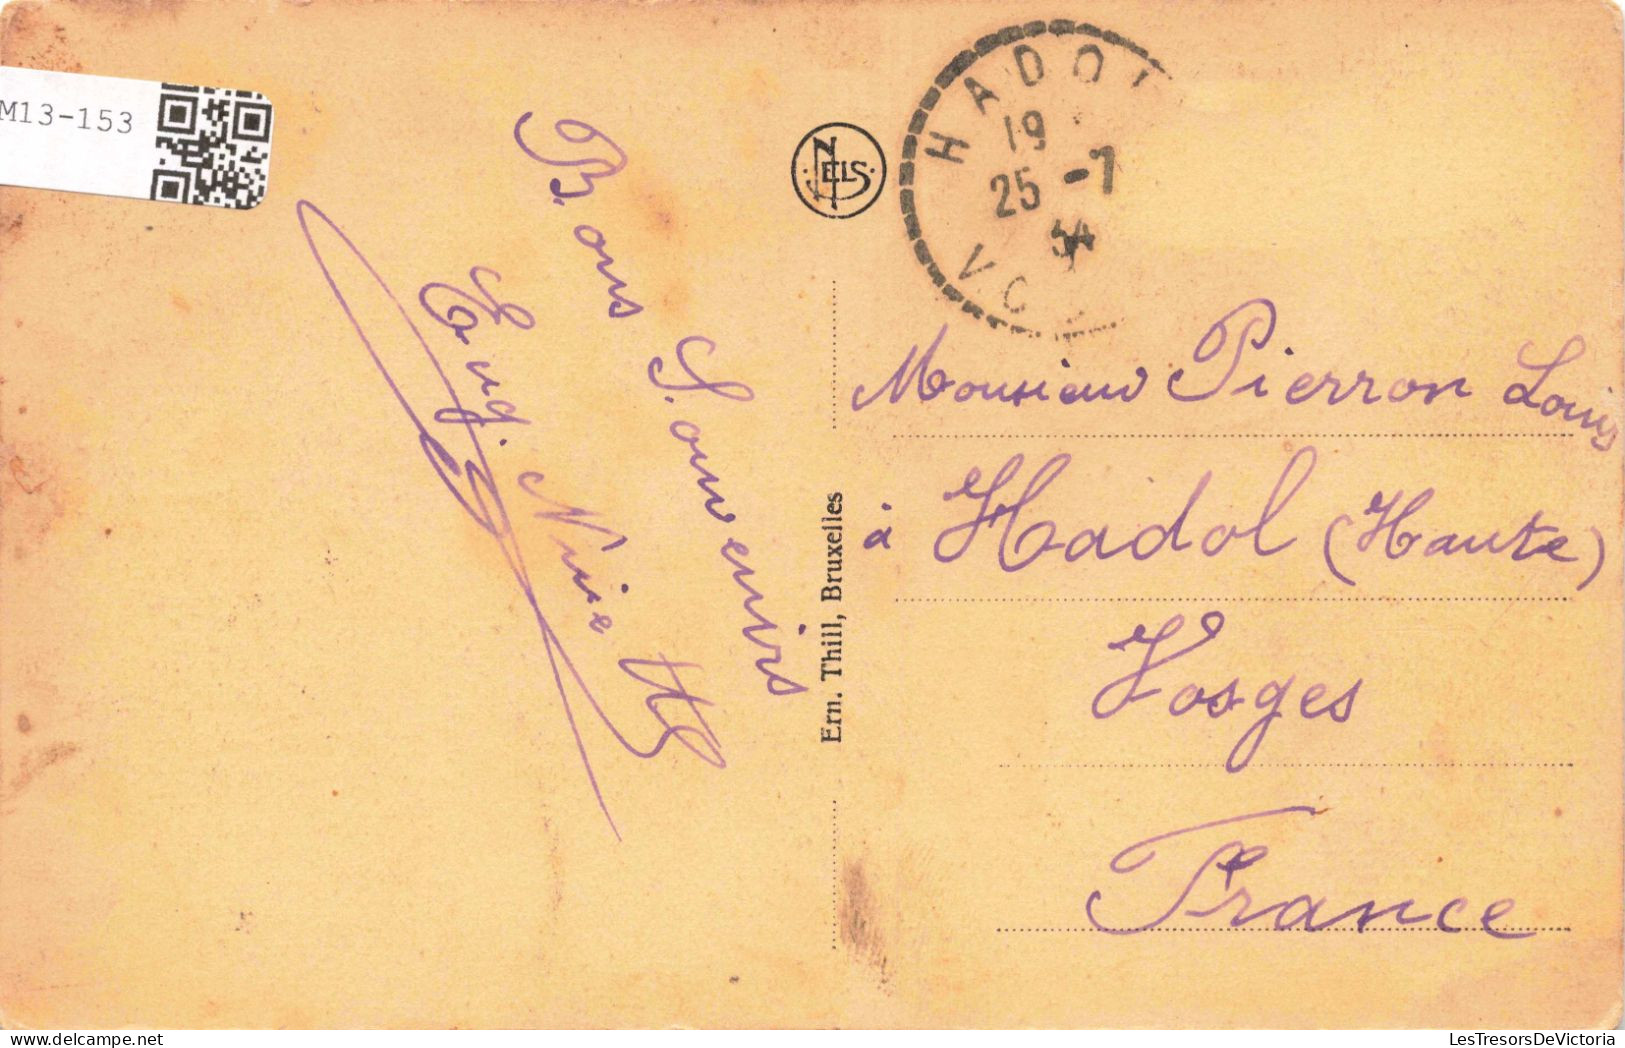 M13-153
Bons Souvenirs
Eug.
NELS
Ern. Thill, Bruxelles
HADOL
19
25 -7
34
Monsieur Pierron Louis
à Hadol (Haute)
Vosges
France
LesTresorsDeVictoria